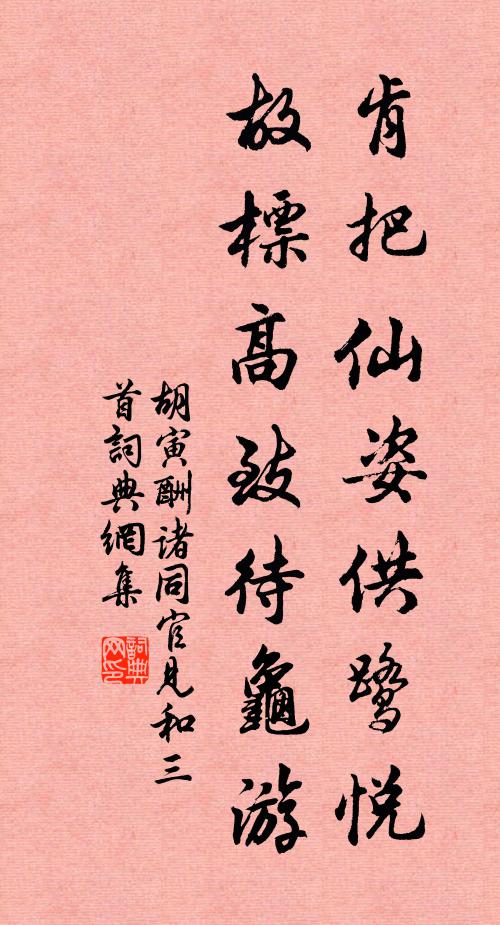 肯把仙姿供鹭悦
故標高致待龜游
胡寅酬诸同官見和三
首詞典網集
詞典网印